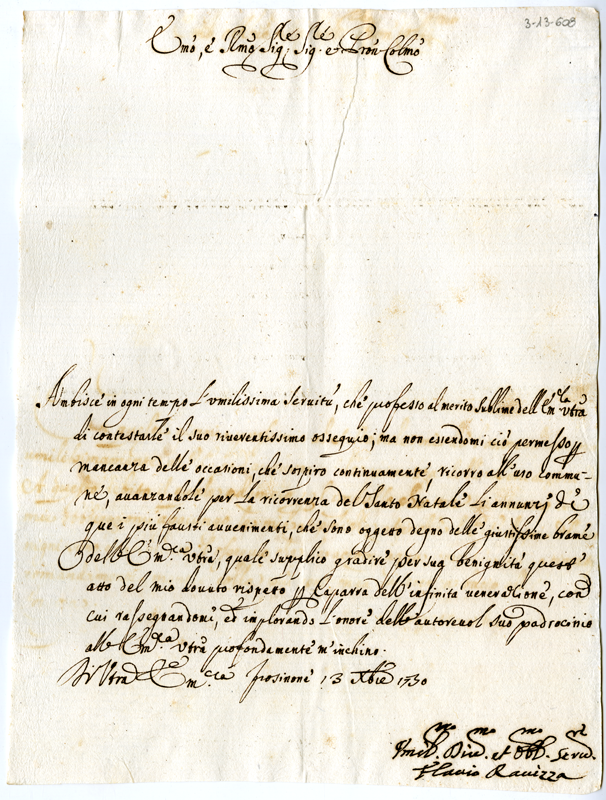 3-13-608
Emõ, e Rmõ Sig.re Sig.re e Pron Colmõ
Ambisce in ogni tempo l'umilissima servitù, che professo al merito sublime dell'Em.za Vrã
di contestarle il suo riverentissimo ossequio; ma non essendomi ciò permesso p
mancanza delle occasioni, che sospiro continuamente, ricorro all'uso commu-
ne, avanzandole per la ricorrenza del Santo Natale li annunzj di
que i più fausti avvenimenti, che sono oggetto degno delle giustissime brame
dell'Em.za Vrã, quale supplico gradire per sua benignità quest'
atto del mio dovuto rispetto p caparra dell'infinita venerazione, con
cui rassegnandomi, ed implorando l'onore dell'autorevol suo padrocinio
all'Em.za Vrã profondamente m'inchino.
Di Vrã Em.za Frosinone 13 Xbre 1730
Umil.mo Div.mo et Obb.mo Serv.re
Flavio Ravizza